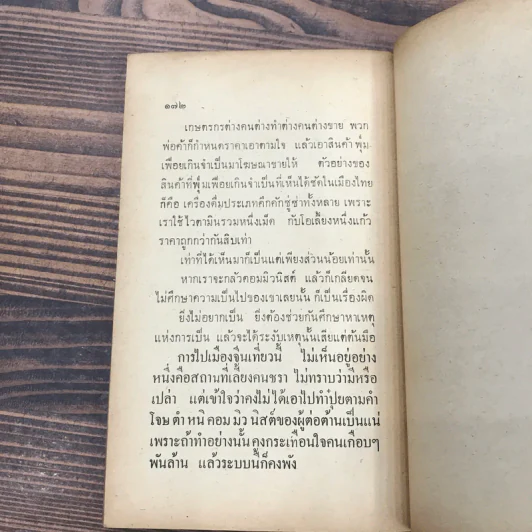 ๑๗๒
เกษตรกรต่างคนต่างทำต่างคนต่างขาย พวก
พ่อค้าก็กำหนดราคาเอาตามใจ แล้วเอาสินค้าฟุ่ม
เฟือยเกินจำเป็นมาโฆษณาขายให้ ตัวอย่างของ
สินค้าที่ฟุ่มเฟือยเกินจำเป็นที่เห็นได้ชัดในเมืองไทย
ก็คือ เครื่องดื่มประเภทคึกคักซู่ซ่าทั้งหลาย เพราะ
เราใช้ไวตามินรวมหนึ่งเม็ด กับโอเลี้ยงหนึ่งแก้ว
ราคาถูกกว่ากันสิบเท่า
เท่าที่ได้เห็นมาก็เป็นแต่เพียงส่วนน้อยเท่านั้น
หากเราจะกลัวคอมมิวนิสต์ แล้วก็เกลียดจน
ไม่ศึกษาความเป็นไปของเขาเลยนั้น ก็เป็นเรื่องผิด
ยิ่งไม่อยากเป็น ยิ่งต้องช่วยกันศึกษาหาเหตุ
แห่งการเป็น แล้วจะได้ระงับเหตุนั้นเสียแต่ต้นมือ
การไปเมืองจีนเที่ยวนี้ ไม่เห็นอยู่อย่าง
หนึ่งคือสถานที่เลี้ยงคนชรา ไม่ทราบว่ามีหรือ
เปล่า แต่เข้าใจว่าคงไม่ได้เอาไปทำปุ๋ยตามคำ
โจษตำหนิคอมมิวนิสต์ของผู้ต่อต้านเป็นแน่
เพราะถ้าทำอย่างนั้น คงกระเทือนใจคนเกือบๆ
พันล้าน แล้วระบบนี้ก็คงพัง